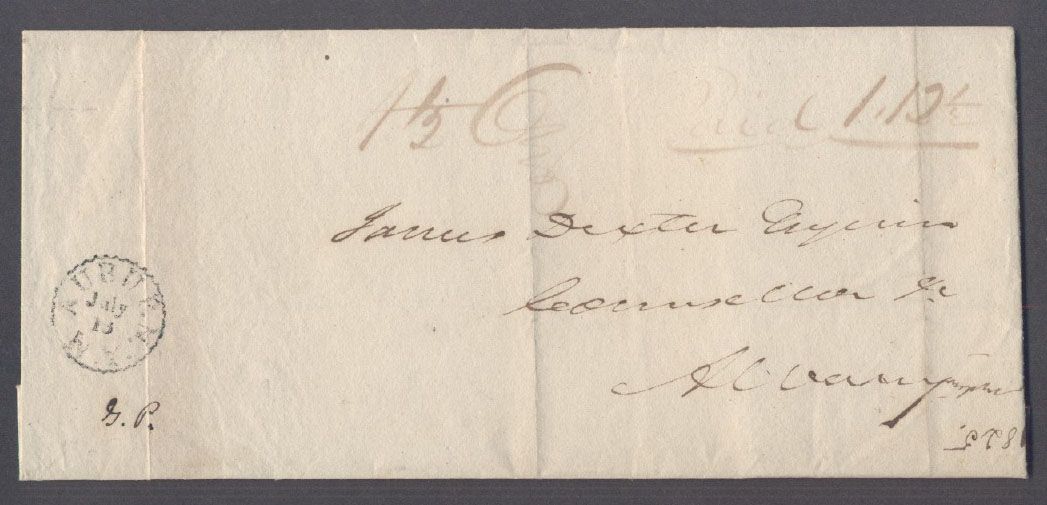 1½ Oz Paid 1.12½
James Dexter Esquire
Counsellor &c
Albany
AUBURN
July
15
N.Y.
G. P.